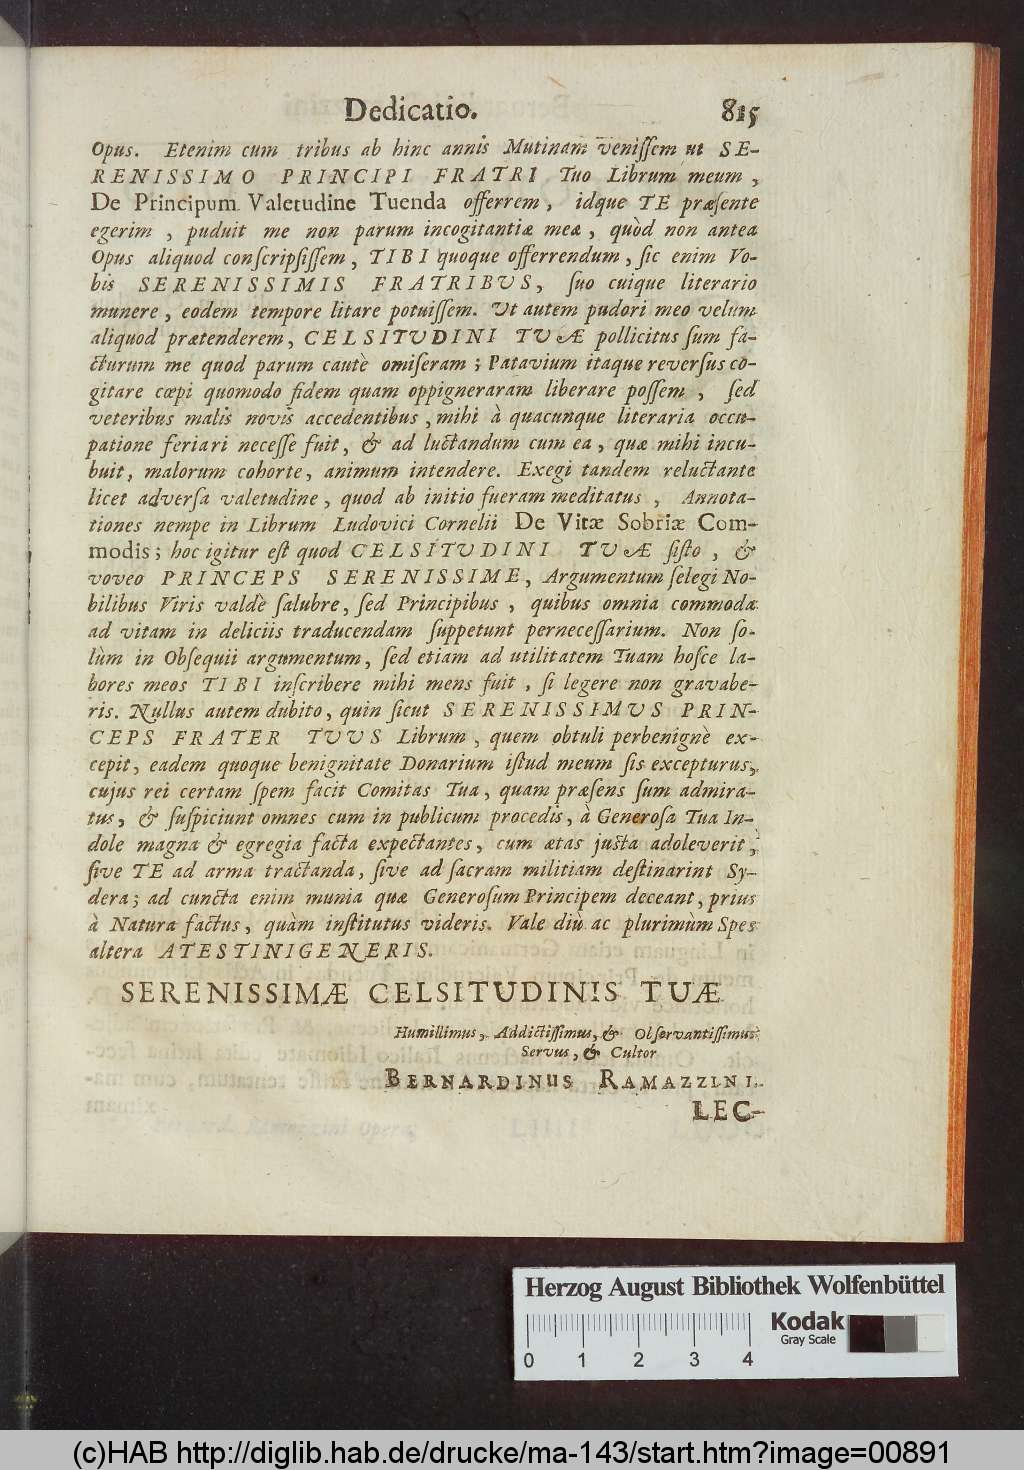 Dedicatio. 815
Opus. Etenim cum tribus ab hinc annis Mutinam veniſſem ut SE-
RENISSIMO PRINCIPI FRATRI Tuo Librum meum,
De Principum Valetudine Tuenda offerrem, idque TE præſente
egerim, puduit me non parum incogitantiæ meæ, quòd non antea
Opus aliquod conſcripſiſſem, TIBI quoque offerrendum, ſic enim Vo-
bis SERENISSIMIS FRATRIBVS, ſuo cuique literario
munere, eodem tempore litare potuiſſem. Ut autem pudori meo velum
aliquod prætenderem, CELSITVDINI TVÆ pollicitus ſum fa-
cturum me quod parum cautè omiſeram; Patavium itaque reverſus co-
gitare cœpi quomodo fidem quam oppigneraram liberare poſſem, ſed
veteribus malis novis accedentibus, mihi à quacunque literaria occu-
patione feriari neceſſe fuit, & ad luctandum cum ea, quæ mihi incu-
buit, malorum cohorte, animum intendere. Exegi tandem reluctante
licet adverſa valetudine, quod ab initio fueram meditatus, Annota-
tiones nempe in Librum Ludovici Cornelii De Vitæ Sobriæ Com-
modis; hoc igitur eſt quod CELSITVDINI TVÆ ſiſto, &
voveo PRINCEPS SERENISSIME, Argumentum ſelegi No-
bilibus Viris valdè ſalubre, ſed Principibus, quibus omnia commoda
ad vitam in deliciis traducendam ſuppetunt perneceſſarium. Non ſo-
lùm in Obſequii argumentum, ſed etiam ad utilitatem Tuam hoſce la-
bores meos TIBI inſcribere mihi mens fuit, ſi legere non gravabe-
ris. Nullus autem dubito, quin ſicut SERENISSIMVS PRIN-
CEPS FRATER TVVS Librum, quem obtuli perbenignè ex-
cepit, eadem quoque benignitate Donarium iſtud meum ſis excepturus,
cujus rei certam ſpem facit Comitas Tua, quam præſens ſum admira-
tus, & ſuſpiciunt omnes cum in publicum procedis, à Generoſa Tua In-
dole magna & egregia facta expectantes, cum ætas juſta adoleverit,
ſive TE ad arma tractanda, ſive ad ſacram militiam deſtinarint Sy-
dera; ad cuncta enim munia quæ Generoſum Principem deceant, prius
à Natura factus, quàm inſtitutus videris. Vale diù ac plurimùm Spes
altera ATESTINI GENERIS.
SERENISSIMÆ CELSITUDINIS TUÆ
Humillimus, Addictiſſimus, & Obſervantiſſimus
Servus, & Cultor
BERNARDINUS RAMAZZINI.
LEC-
Herzog August Bibliothek Wolfenbüttel
Kodak
Gray Scale
0 1 2 3 4
(c)HAB http://diglib.hab.de/drucke/ma-143/start.htm?image=00891